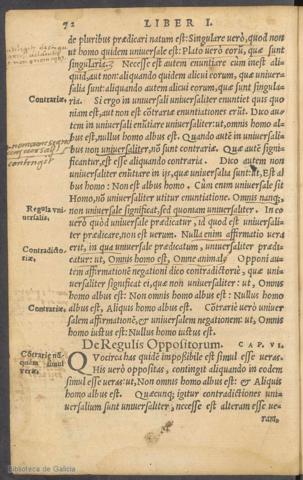 72 LIBER I.
de pluribus prædicari natum est: Singulare verò, quod non
ut homo quidem universale est: Plato verò eorũ, quæ sunt
singularia. Necesse est autem enuntiare cùm inest ali-
quid, aut non: aliquando quidem alicui eorum, quæ univer-
salia sunt: aliquando autem alicui eorum, quæ sunt singula-
ria.
Contrariæ,
Si ergo in universali universaliter enuntiet quis quo
niam est, aut non est cõtrariæ enuntiationes erũt. Dico au-
tem in universali enũtiare universaliter: ut, omnis homo al-
bus est, nullus homo albus est. Quando autẽ in universali-
bus non universaliter, nõ sunt contrariæ. Quæ autẽ signi-
ficantur, est esse aliquando contraria. Dico autem non
universaliter enũtiare in ijs, quæ universalia sunt: ut, Est al
bus homo: Non est albus homo. Cùm enim universale sit
Homo, nõ universaliter utitur enuntiatione. Omnis nanq;
Regula uni-
versalis.
non universale significat, sed quoniam universaliter. In eo
verò quòd universale prædicatur, id quod est universali-
ter prædicare, non est verum. Nulla enim affirmatio vera
erit, in qua universale prædicatum, universaliter prædi-
Contradicto-
riæ,
catur: ut, Omnis homo est, Omne animal. Opponi au-
tem affirmationẽ negationi dico contradictoriè, quæ uni-
versaliter significat ei, quæ non universaliter: ut, Omnis
homo albus est: Non omnis homo albus est: Nullus homo
Contrariæ.
albus est, Aliquis homo albus est: Cõtrariè verò univer
salem affirmationẽ, & universalem negationem: ut, Omnis
homo iustus est: Nullus homo iustus est.
De Regulis Oppositorum. CAP. VI.
Cõtrariæ nũ-
quam simul
veræ.
QVocirca has quidẽ impossibile est simul esse veras.
His verò oppositas, contingit aliquando in eodem
simul esse veras: ut, Non omnis homo albus est: & Aliquis
homo albus est. Quæcunq; igitur contradictiones uni-
versalium sunt universaliter, necesse est alteram esse ve-
ram,
Biblioteca de Galicia